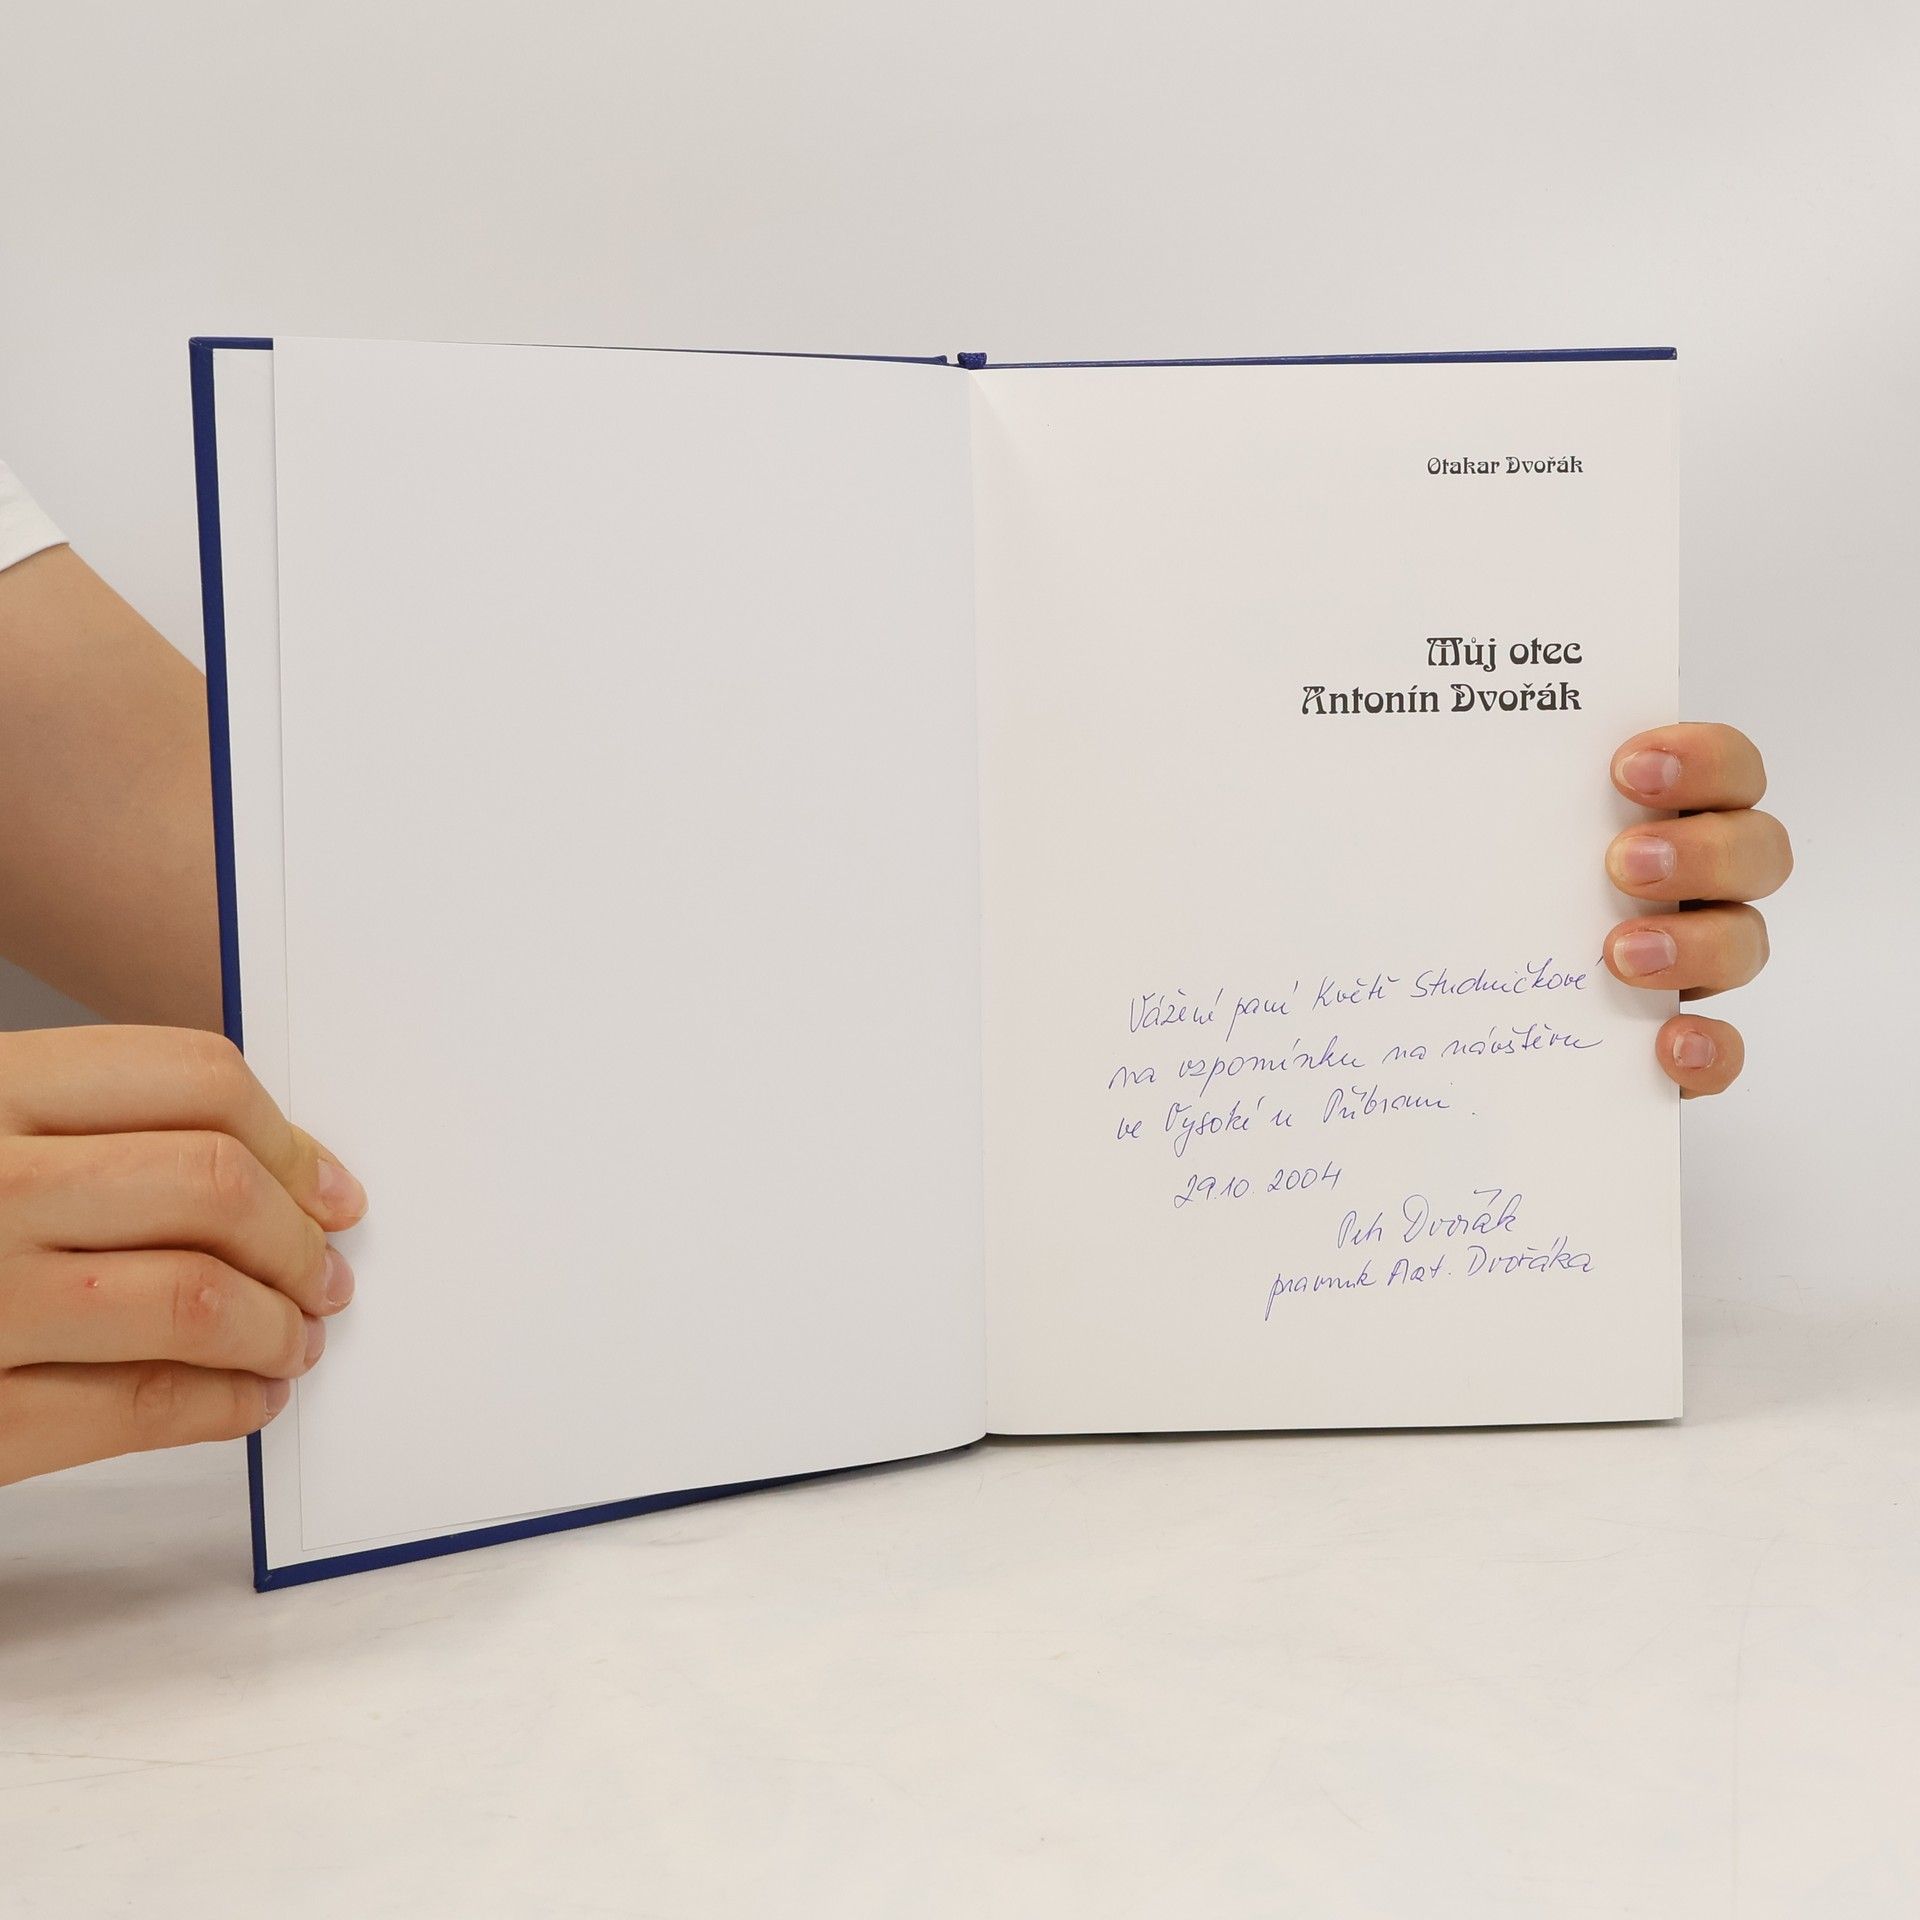 Otakar Dvořák
Můj otec
Antonín Dvořák
Vážené paní Květě Studničkové
na vzpomínku na návštěvu
ve Vysoké u Příbrami.
29.10.2004
Petr Dvořák
pravnuk Ant. Dvořáka